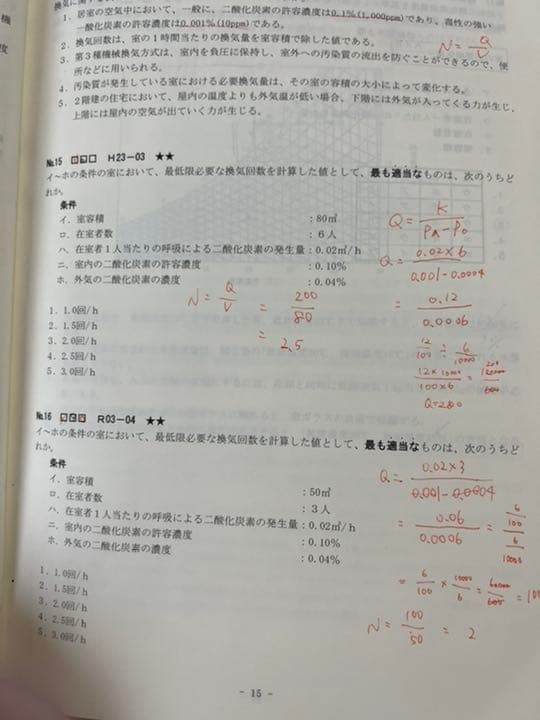 1．居室の空気中において、一般に、二酸化炭素の許容濃度は0.1%(1,000ppm)であり、毒性の強い
一酸化炭素の許容濃度は0.001%(10ppm)である。
2．換気回数は、室の1時間当たりの換気量を室容積で除した値である。
N = Q/V
3．第3種機械換気方式は、室内を負圧に保持し、室外への汚染質の流出を防ぐことができるので、便
所などに用いられる。
4．汚染質が発生している室における必要換気量は、その室の容積の大小によって変化する。
5．2階建の住宅において、屋内の温度よりも外気温が低い場合、下階には外気が入ってくる力が生じ、
上階には屋内の空気が出ていく力が生じる。
No.15 H23-03 ★★
イ～ホの条件の室において、最低限必要な換気回数を計算した値として、最も適当なものは、次のうちど
れか。
条件
イ．室容積 :80㎥
ロ．在室者数 :6人
ハ．在室者1人当たりの呼吸による二酸化炭素の発生量:0.02㎥/h
ニ．室内の二酸化炭素の許容濃度 :0.10%
ホ．外気の二酸化炭素の濃度 :0.04%
1．1.0回/h
2．1.5回/h
3．2.0回/h
4．2.5回/h
5．3.0回/h
N = Q/V = 200/80
= 2.5
Q = K/(Pa-Po)
Q = 0.02×6/(0.001-0.0004)
= 0.12/0.0006
12/100 ÷ 6/10000
Q=200
No.16 R03-04 ★★
イ～ホの条件の室において、最低限必要な換気回数を計算した値として、最も適当なものは、次のうちど
れか。
条件
イ．室容積 :50㎥
ロ．在室者数 :3人
ハ．在室者1人当たりの呼吸による二酸化炭素の発生量:0.02㎥/h
ニ．室内の二酸化炭素の許容濃度 :0.10%
ホ．外気の二酸化炭素の濃度 :0.04%
1．1.0回/h
2．1.5回/h
3．2.0回/h
4．2.5回/h
5．3.0回/h
Q = 0.02×3/(0.001-0.0004)
= 0.06/0.0006 = 6/100 / 6/10000
= 6/100 × 10000/6 = 60000/600 = 100
N = 100/50 = 2
- 15 -